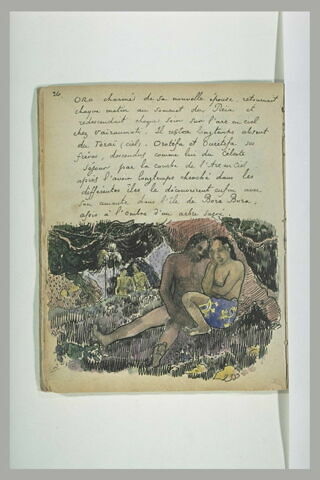 26
Oro charmé de sa nouvelle épouse, retournait
chaque matin au sommet du Païa et
redescendait chaque soir sur l'arc en ciel
chez Vaïraumati. Il resta longtemps absent
du Terai (ciel). Orotefa et Ouretefa ses
frères, descendus comme lui du céleste
séjour par la courbe de l'Arc en Ciel
après l'avoir longtemps cherché dans les
différentes îles le découvrirent enfin avec
son amante dans l'île de Bora Bora,
assis à l'ombre d'un arbre sacré